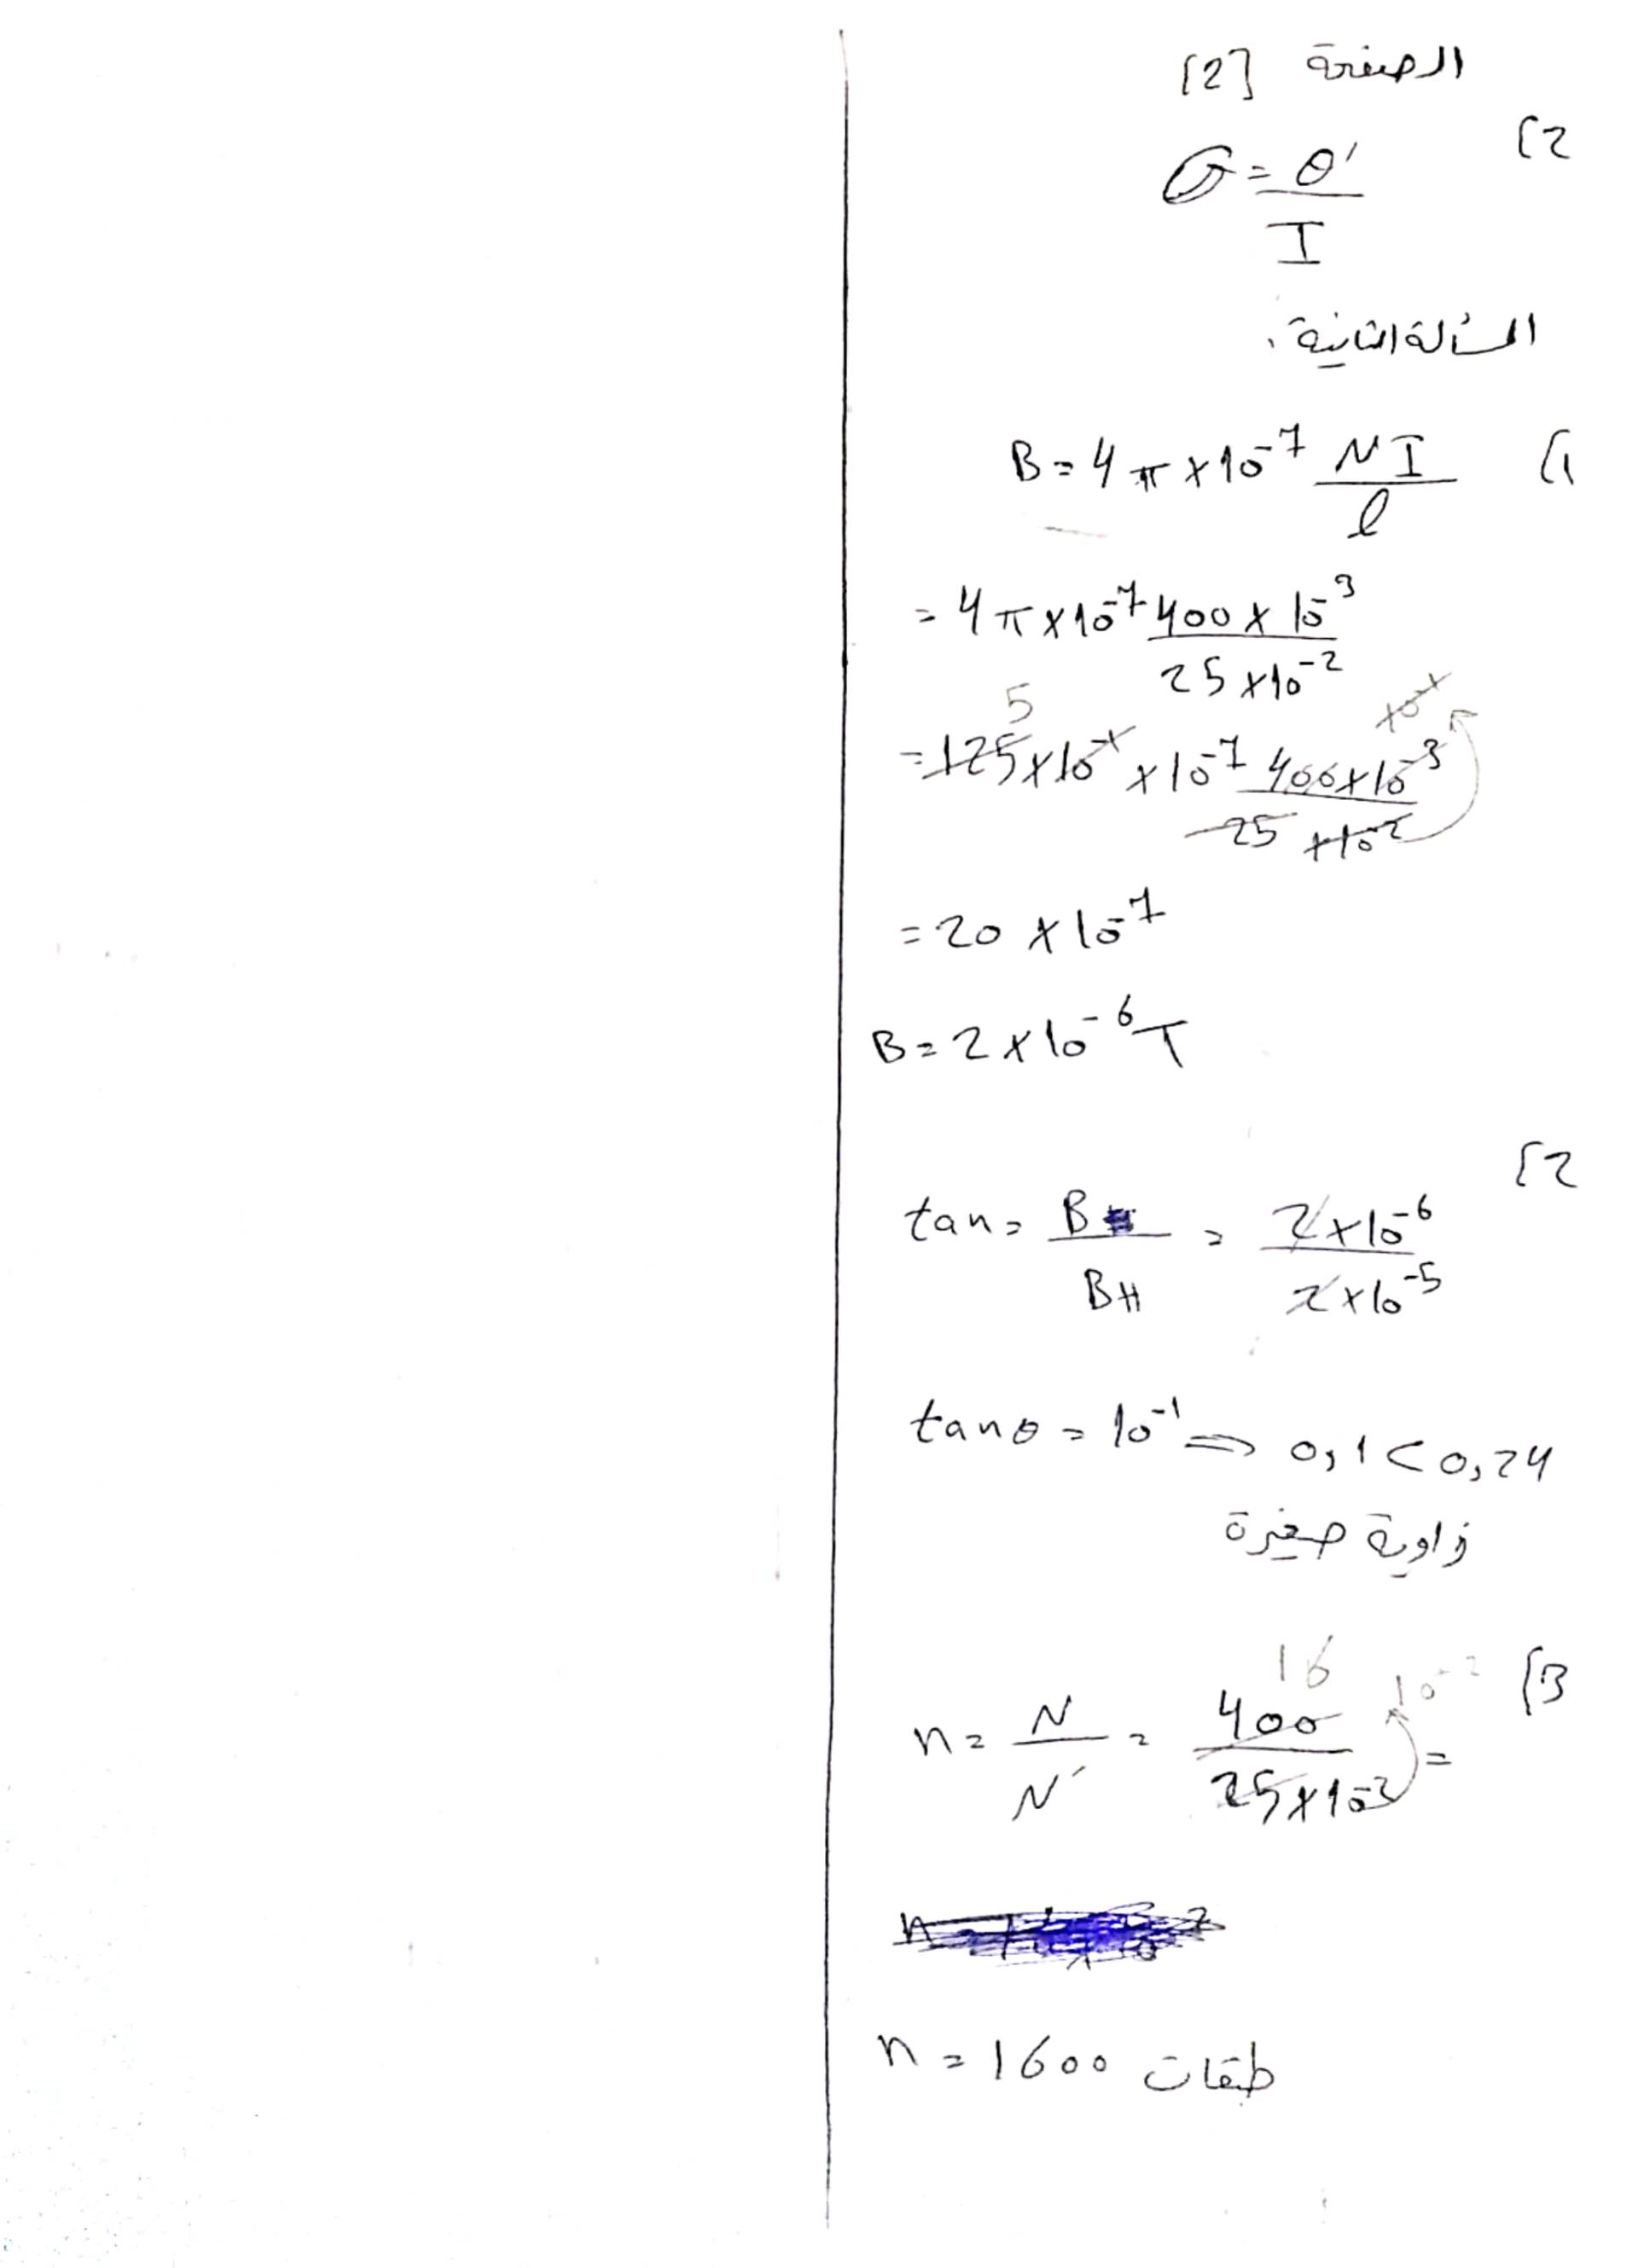 الصفحة [2]
2)
G = θ' / I
المسألة الثانية.
1) B = 4π × 10⁻⁷ NI / l
= 4π × 10⁻⁷ 400 × 10⁻³ / 25 × 10⁻²
5
= 125 × 10⁻¹ × 10⁻⁷ 400 × 10⁻³ / 25 × 10⁻²
= 20 × 10⁻⁷
B = 2 × 10⁻⁶ T
2)
tan = B / BH = 2 × 10⁻⁶ / 2 × 10⁻⁵
tanθ = 10⁻¹ ⇒ 0,1 < 0,24
زاوية صغيرة
16 10⁻²
3) n = N / N' = 400 / 25 × 10⁻² =
n = 1600 طبقات